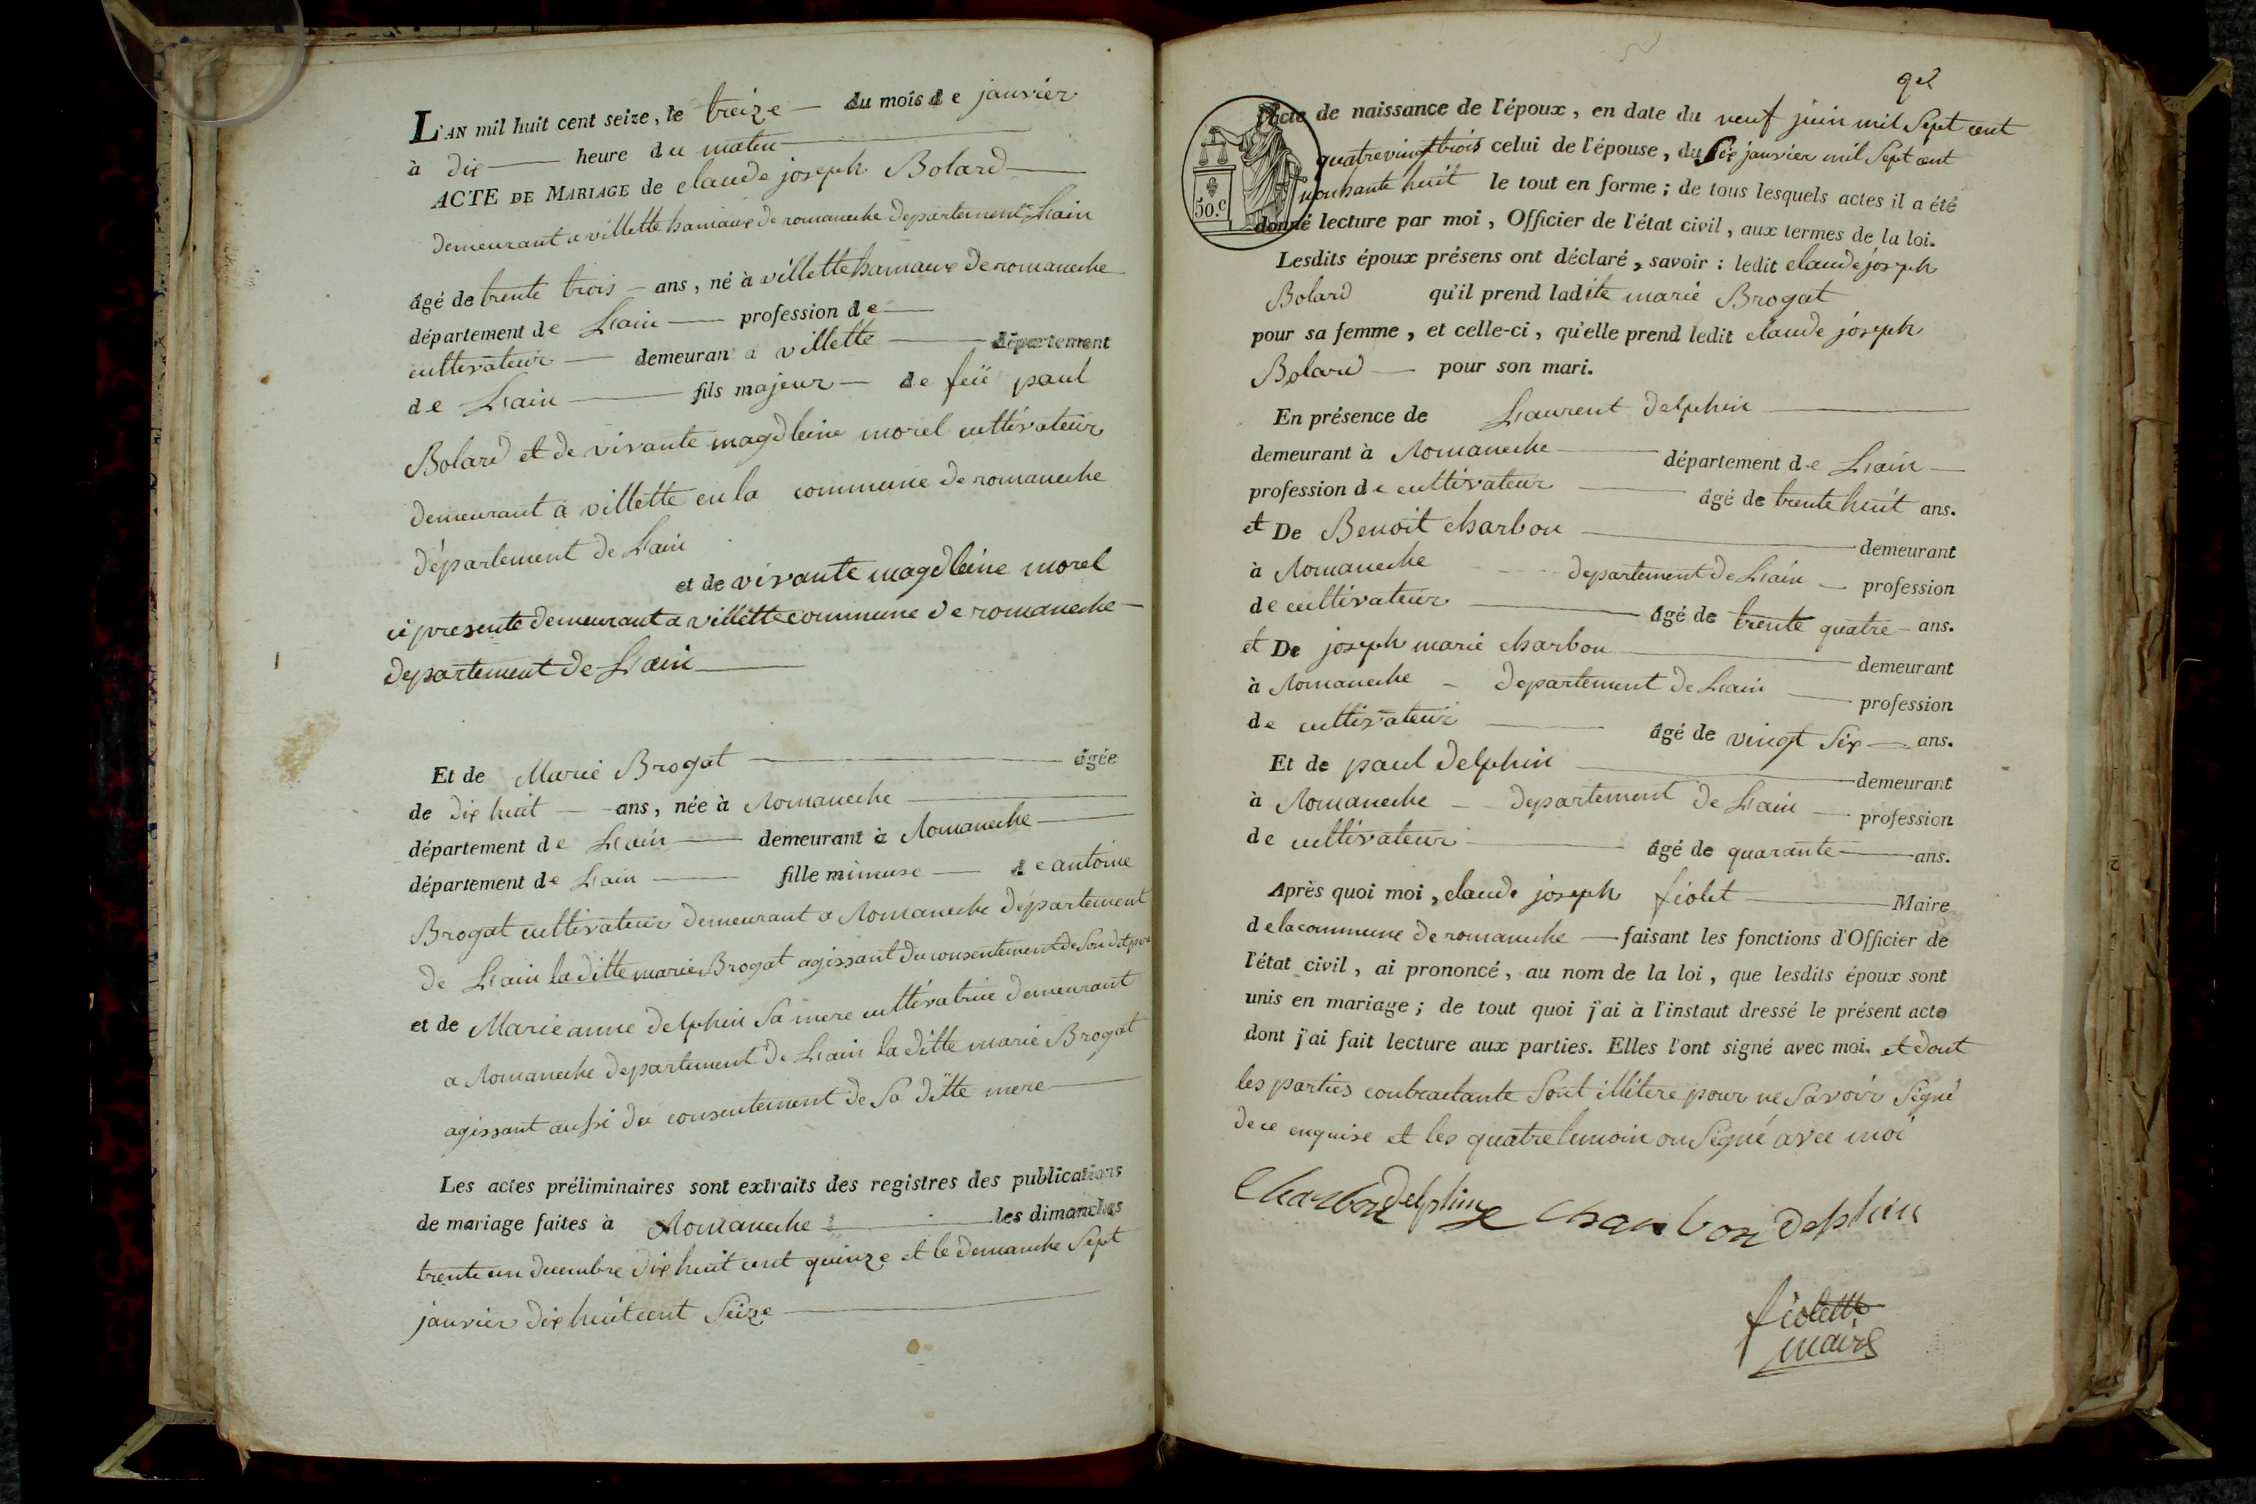 L'AN mil huit cent seize, le treize du mois de janvier
à dix heure du matin
ACTE DE MARIAGE de claude joseph Bolard
demeurant a villette hamaux de romaneche departement Lain
âgé de trente trois ans, né à villette hamaux de romaneche
département de Lain profession de
cultivateur demeurant a villette département
de Lain fils majeur de feü paul
Bolard et de vivante magdleine morel cultivateur
demeurant a villette en la commune de romaneche
département de Lain
et de vivante magdleine morel
ci presente demeurant a villette commune de romaneche
departement de Lain
Et de Marie Brogat âgée
de dix huit ans, née à Romaneche
département de Lain demeurant à Romaneche
département de Lain fille mineure de antoine
Brogat cultivateur demeurant a Romaneche département
de Lain la ditte marie Brogat agissant du consentement de son dit pere
et de Marie anne delphin sa mere cultivatrice demeurant
a Romaneche departement de Lain la ditte marie Brogat
agissant aussi du consentement de sa ditte mere
Les actes préliminaires sont extraits des registres des publications
de mariage faites à Romaneche les dimanches
trente un decembre dix huit cent quinze et le demanche sept
janvier dix huit cent seize
92
50.c
l'acte de naissance de l'époux, en date du neuf juin mil sept cent
quatrevingt trois celui de l'épouse, du six janvier mil sept cent
nonhante huit le tout en forme; de tous lesquels actes il a été
donné lecture par moi, Officier de l'état civil, aux termes de la loi.
Lesdits époux présens ont déclaré, savoir: ledit claude joseph
Bolard qu'il prend ladite marie Brogat
pour sa femme, et celle-ci, qu'elle prend ledit claude joseph
Bolard pour son mari.
En présence de Laurent delphin
demeurant à Romaneche département de Lain
profession de cultivateur âgé de trente huit ans.
et De Benoit charbon demeurant
à Romaneche departement de Lain profession
de cultivateur âgé de trente quatre ans.
et De joseph marie charbon demeurant
à Romaneche departement de Lain profession
de cultivateur âgé de vingt six ans.
Et de paul delphin demeurant
à Romaneche departement de Lain profession
de cultivateur âgé de quarante ans.
Après quoi moi, claude joseph fiolet Maire
de la commune de romaneche faisant les fonctions d'Officier de
l'état civil, ai prononcé, au nom de la loi, que lesdits époux sont
unis en mariage; de tout quoi j'ai à l'instant dressé le présent acte
dont j'ai fait lecture aux parties. Elles l'ont signé avec moi. et dont
les parties contractante sont illitere pour ne savoir signé
de ce enquise et les quatre temoin on signé avec moi
Charbon delphin Charbon delphin
fiolett
maire